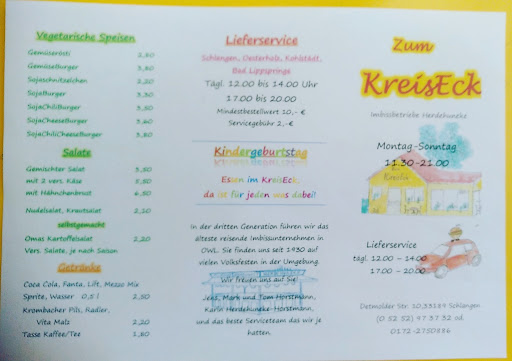 Vegetarische Speisen
Gemüserösti 2,80
GemüseBurger 3,50
Sojaschnitzelchen 2,20
SojaBurger 3,30
SojaChiliBurger 3,50
SojaCheeseBurger 3,60
SojaChiliCheeseBurger 3,80
Salate
Gemischter Salat 3,50
mit 2 vers. Käse 5,50
mit Hähnchenbrust 6,50
Nudelsalat, Krautsalat 2,20
selbstgemacht
Omas Kartoffelsalat 2,20
Vers. Salate, je nach Saison
Getränke
Coca Cola, Fanta, Lift, Mezzo Mix
Sprite, Wasser 0,5 l 2,50
Krombacher Pils, Radler,
Vita Malz 2,20
Tasse Kaffee/Tee 1,80
Lieferservice
Schlangen, Oesterholz, Kohlstädt,
Bad Lippspringe
Tägl. 12.00 bis 14.00 Uhr
17.00 bis 20.00
Mindestbestellwert 10,- €
Servicegebühr 2,-€
Kindergeburtstag
Essen im KreisEck,
da ist für jeden was dabei!
In der dritten Generation führen wir das
älteste reisende Imbissunternehmen in
OWL. Sie finden uns seit 1930 auf
vielen Volksfesten in der Umgebung.
Wir freuen uns auf Sie!
Jens, Mark und Tom Horstmann,
Karin Herdehuneke-Horstmann,
und das beste Serviceteam das wir je
hatten.
Zum
KreisEck
Imbissbetriebe Herdehuneke
Montag-Sonntag
11.30-21.00
Lieferservice
tägl. 12.00 – 14.00
17.00 – 20.00
Detmolder Str. 10,33189 Schlangen
(0 52 52) 97 37 32 od.
0172-2750886